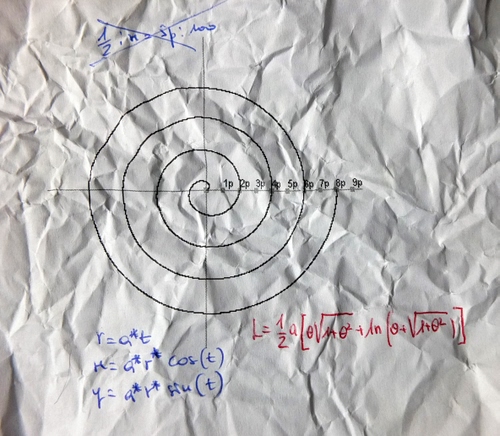 1p 2p 3p 4p 5p 6p 7p 8p 9p
r=a*t
x=a*r* cos(t)
y=a*r* sin(t)
L=1/2a[θ√1+θ²+ln(θ+√1+θ²)]